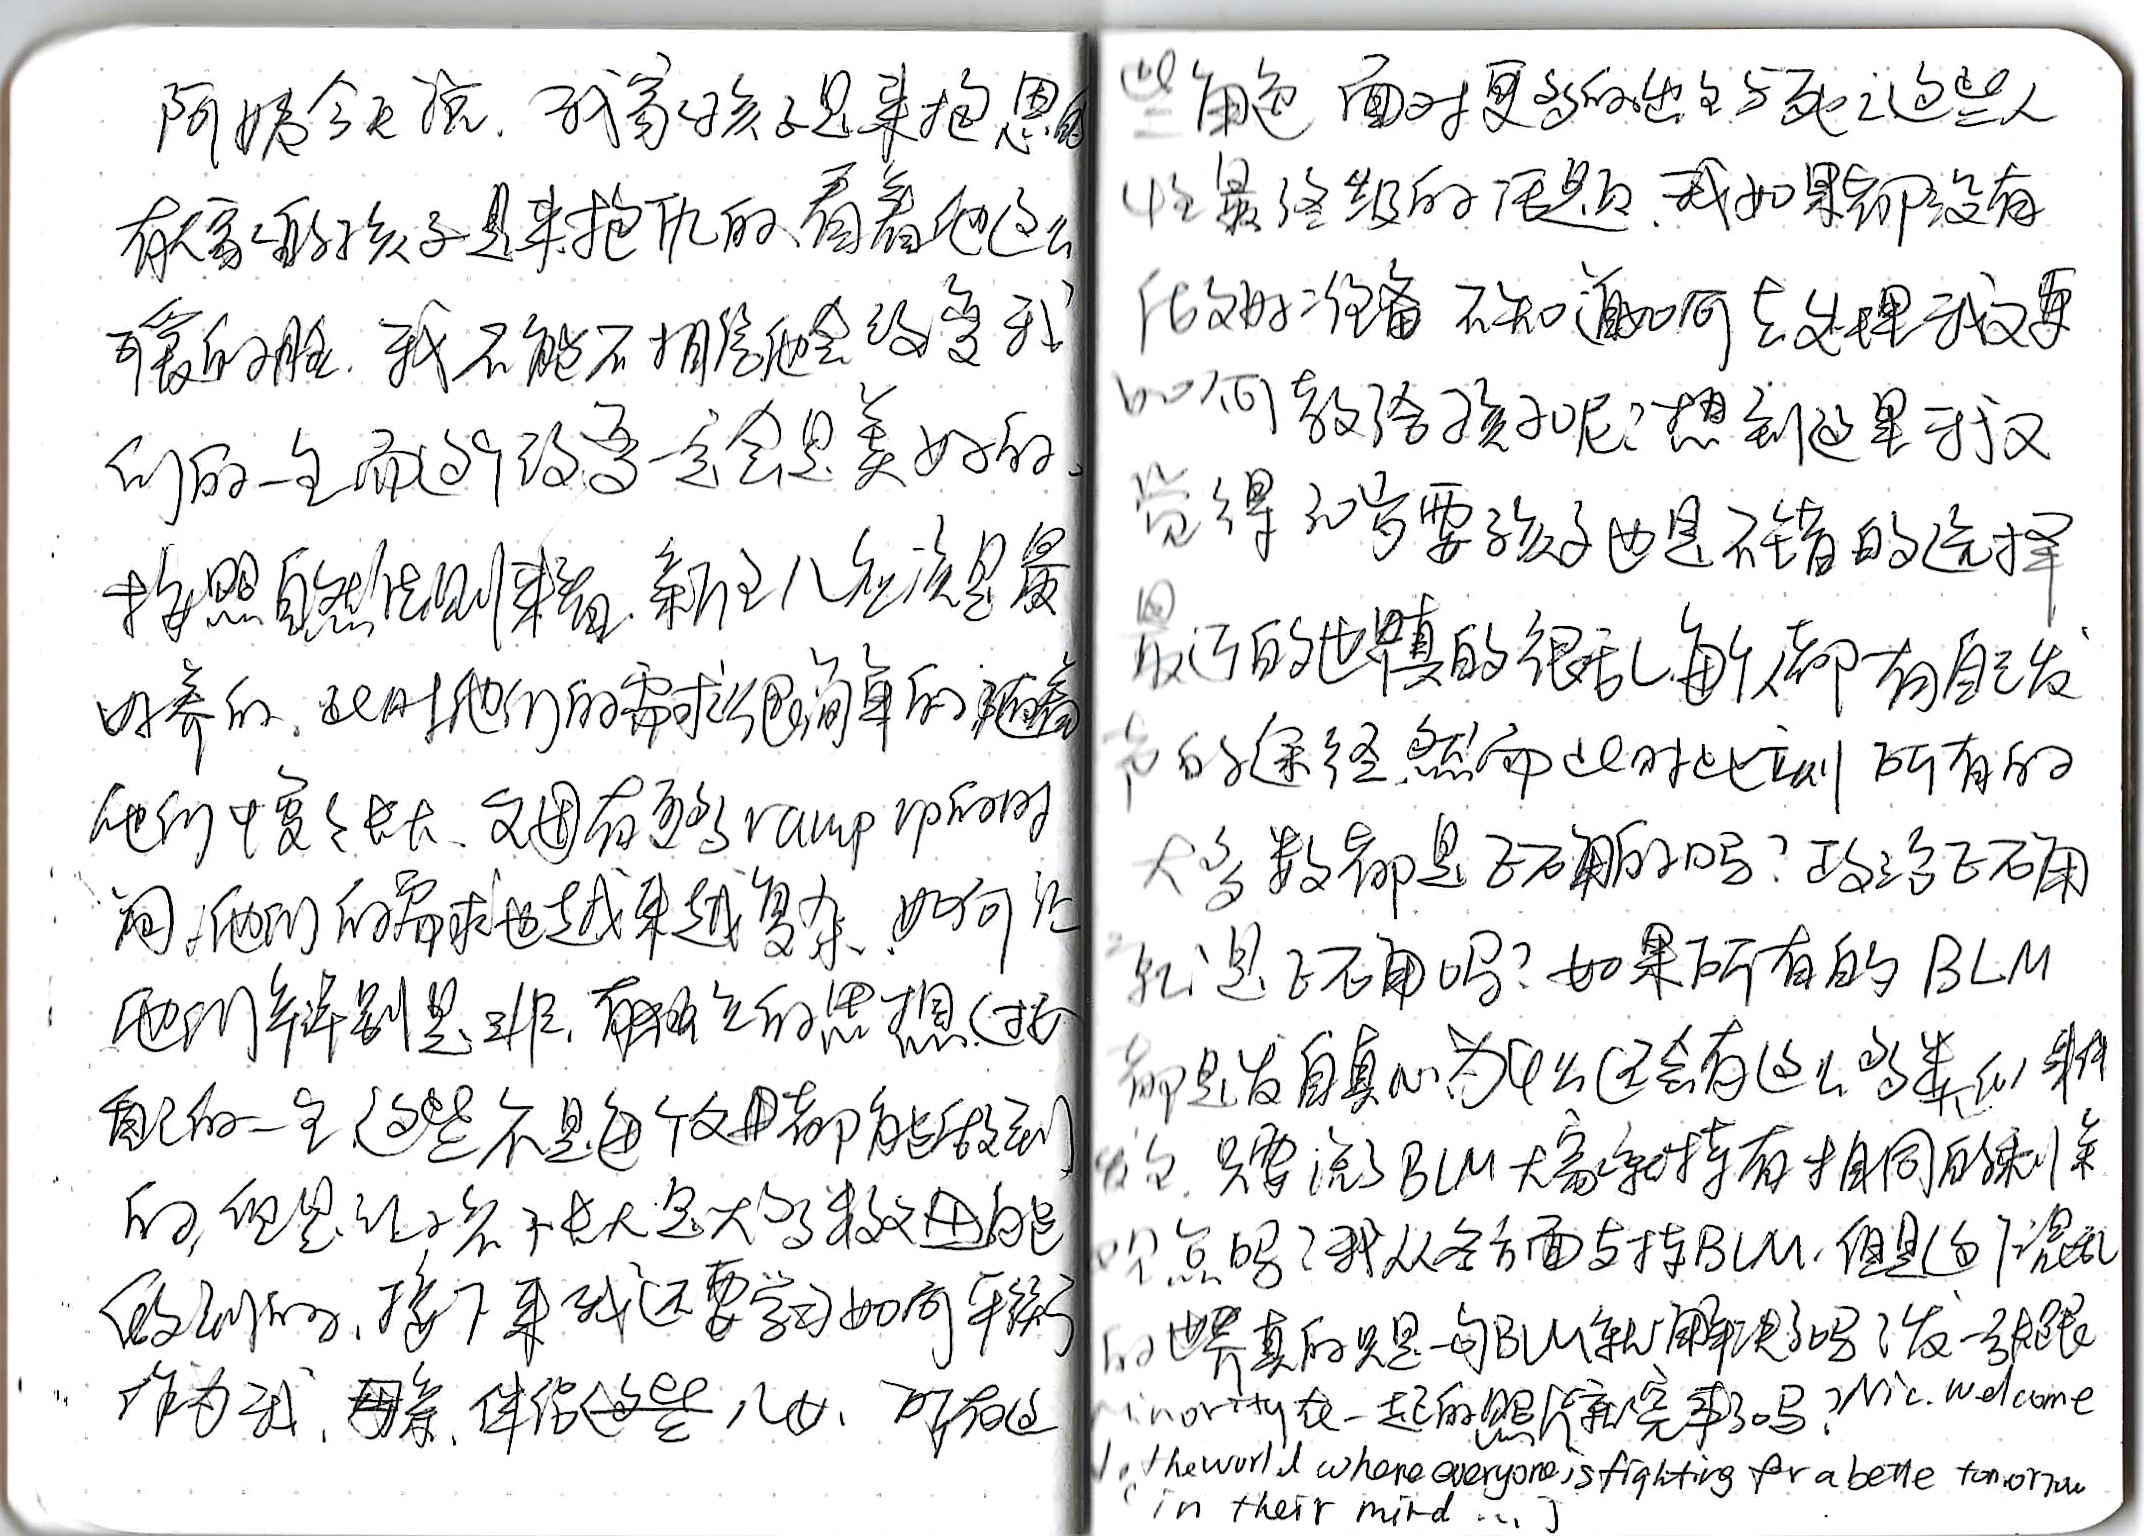 阿姨今天说、我家孩子是来抱恩的
有人家的孩子是来抱仇的、看着他这么
可爱的脸、我不能不相信他会改变我
们的一生而这个改变一定会是美好的、
按照自然法则来看、新生儿应该是最
好养的、此时他们的需求很简单的随着
他们慢慢长大、父母有更多ramp up的时
间、他们的需求也越来越复杂、如何让
他们辨别是非、有独立的思想、过好
自己的一生这些不是每个父母都能做到
的、但是让孩子长大是大多数父母能
做到的、接下来我还要学习如何平衡
作为我、母亲、伴侣这些儿女、所有这
些角色 面对更多的生生与死之这些人
性最终级的话题、我如果都没有
做好准备 不知道如何去处理我又要
如何教给孩子呢？想到这里我又
觉得30岁要孩子也是不错的选择
最近的世界真的很乱、每个人都有自己发
声的途径、然而此时此刻 所有的
大多数都是正确的吗？政治正确
就是正确吗？如果所有的 BLM
都是发自真心为什么还会有这么多类似事件
发生、只要说了BLM大家就持有相同的利益
观点吗？我从各方面支持BLM、但是这个混乱
的世界真的只是一句BLM就解决了吗？发一张跟
minority在一起的照片就完事了吗？Nic. welcome
to the world where everyone is fighting for a bette tomorrow
in their mind ...